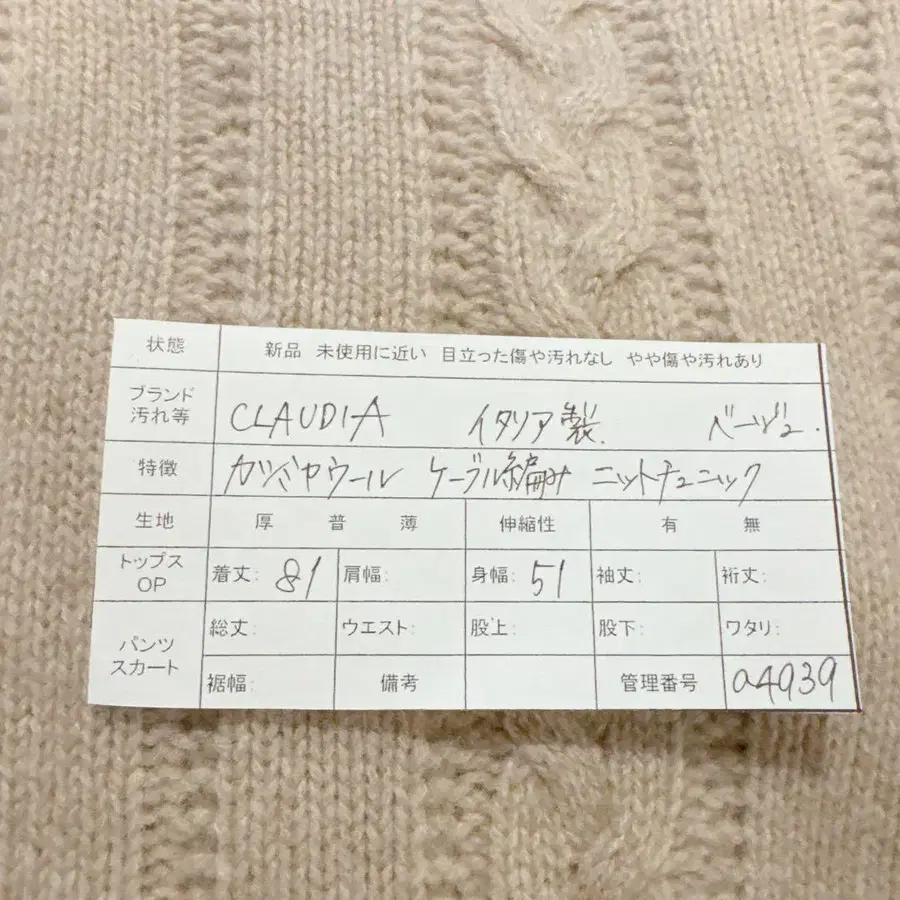 状態 新品 未使用に近い 目立った傷や汚れなし やや傷や汚れあり
ブランド
汚れ等 CLAUDIA イタリア製. ベージュ.
特徴 カシミヤウール ケーブル編み ニットチュニック
生地 厚 普 薄 伸縮性 有 無
トップス
OP 着丈: 81 肩幅: 身幅: 51 袖丈: 裄丈:
パンツ
スカート 総丈: ウエスト: 股上: 股下: ワタリ:
裾幅: 備考 管理番号 a4939